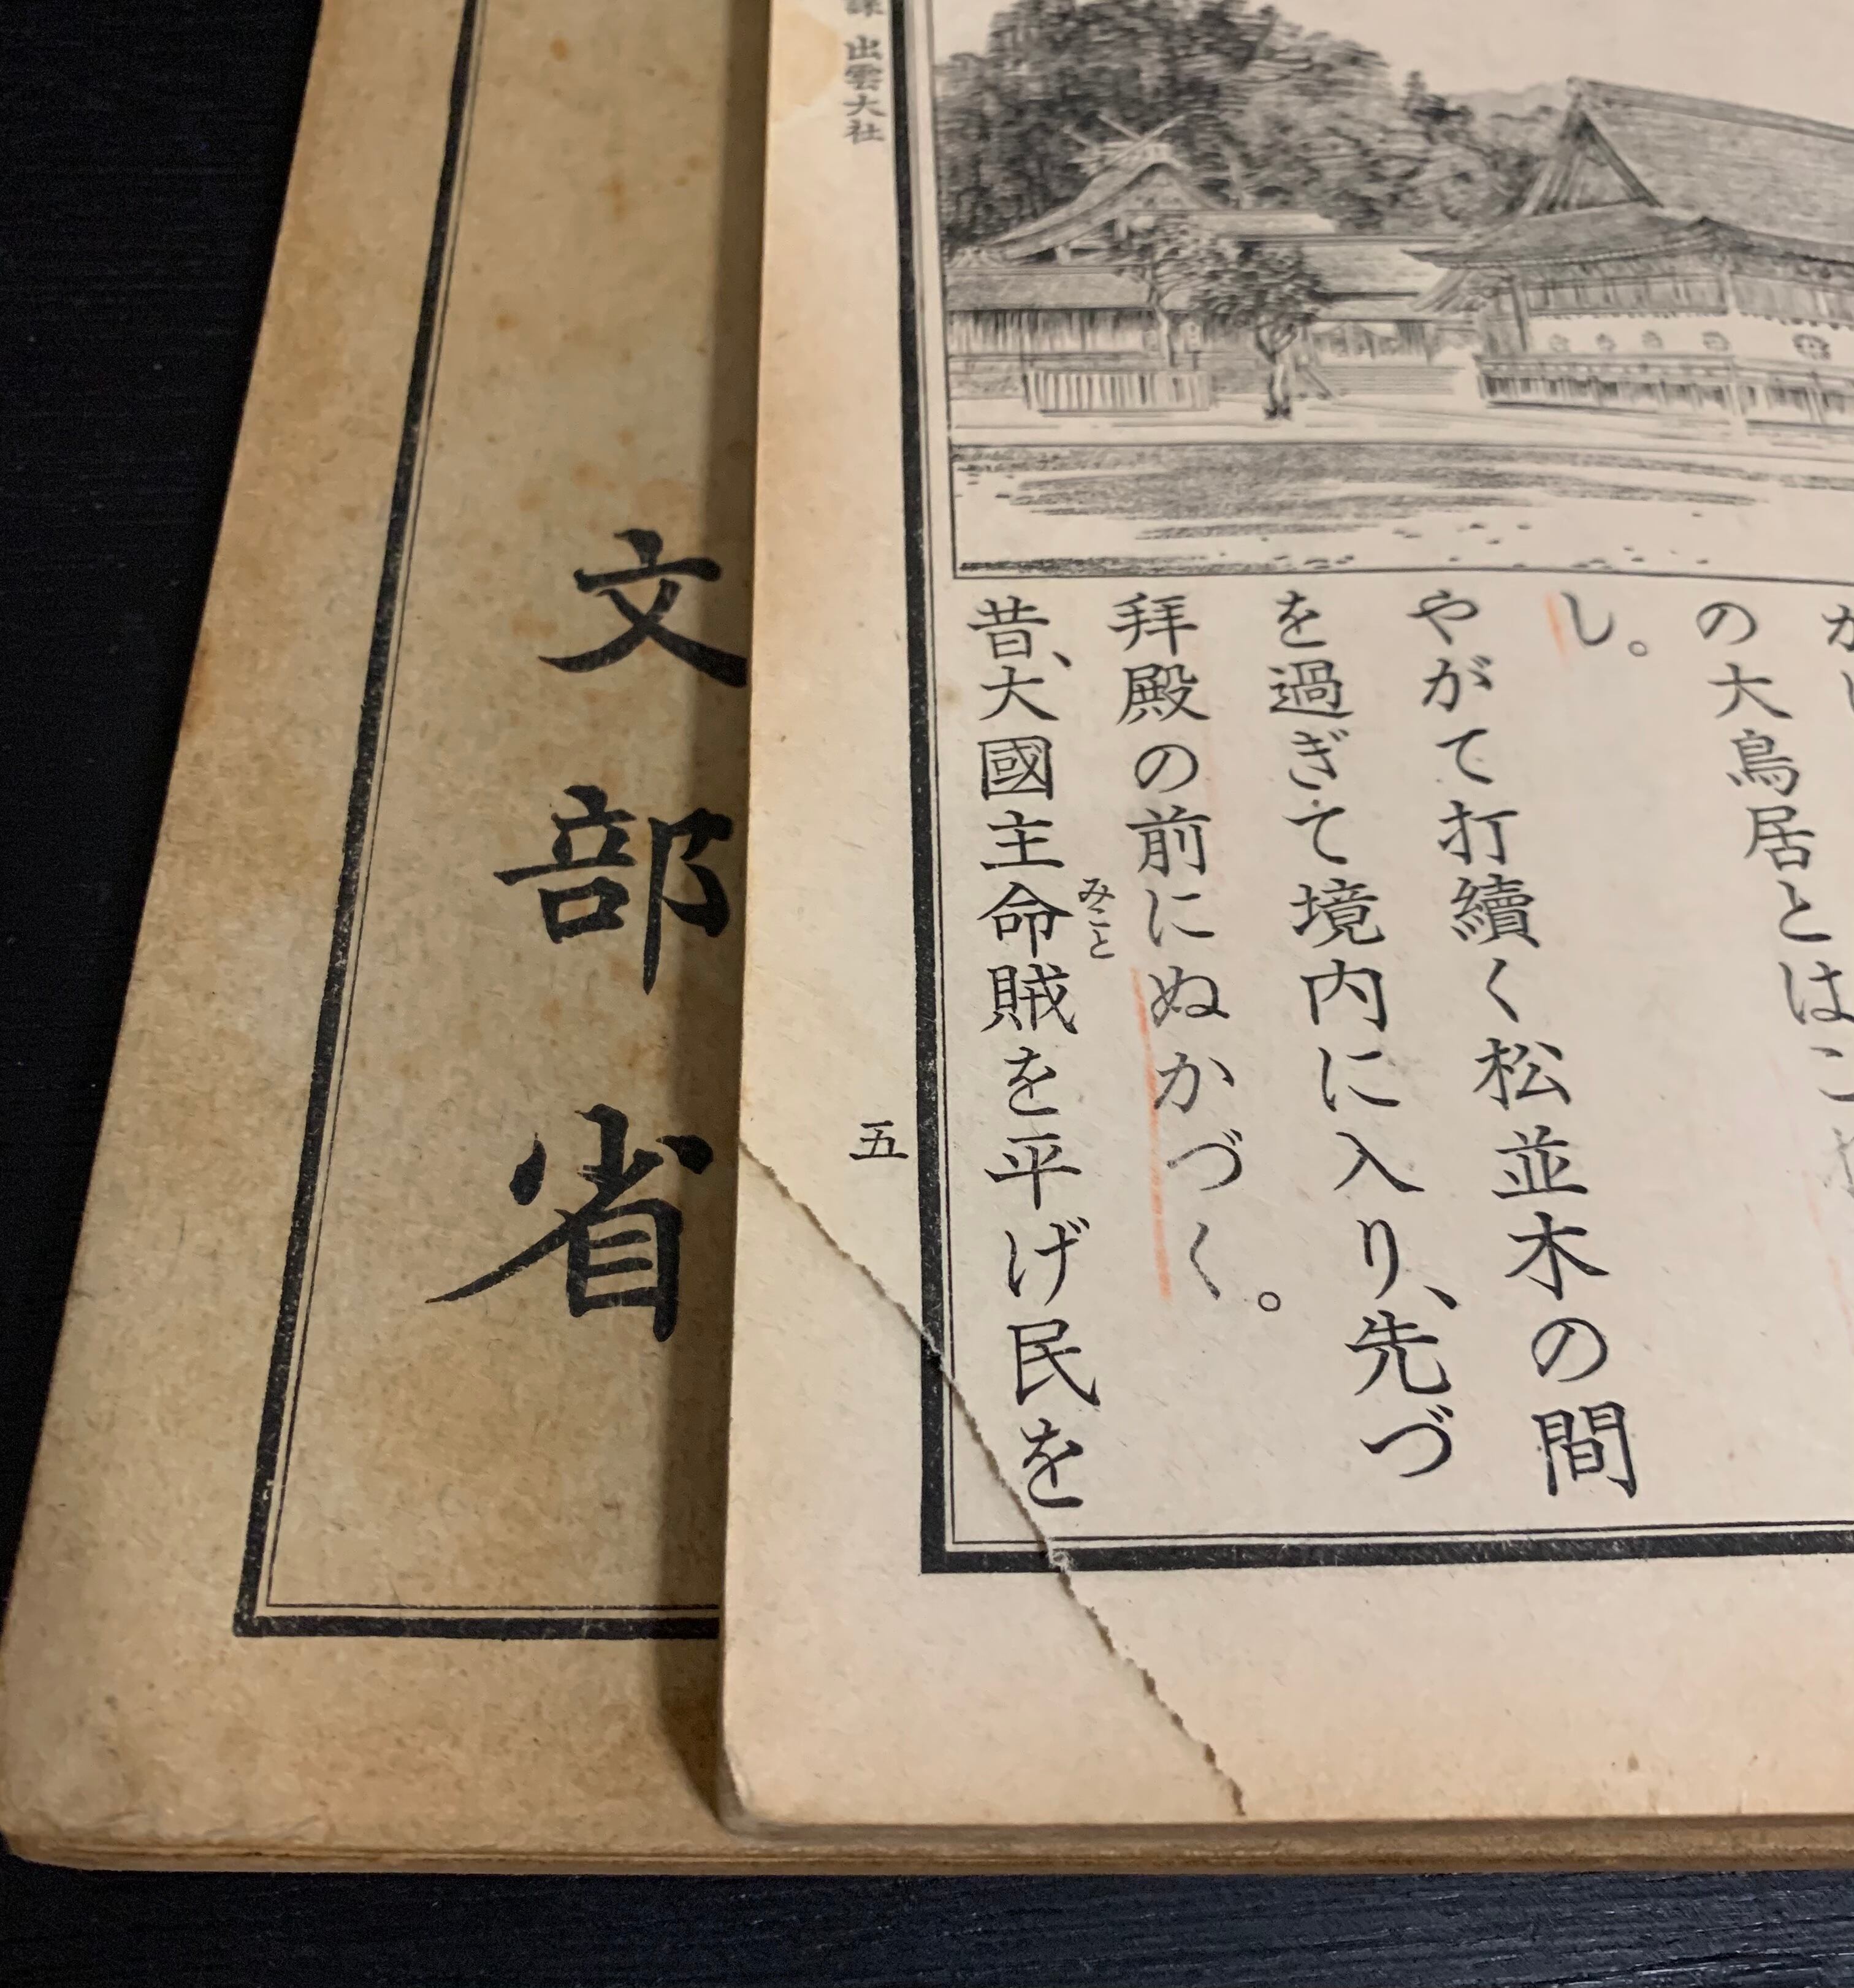 の大鳥居とはこ
し。
やがて打續く松並木の間
を過ぎて境内に入り、先づ
拜殿の前にぬかづく。
昔、大國主命賊を平げ民を
みこと
出雲大社
五
文部省